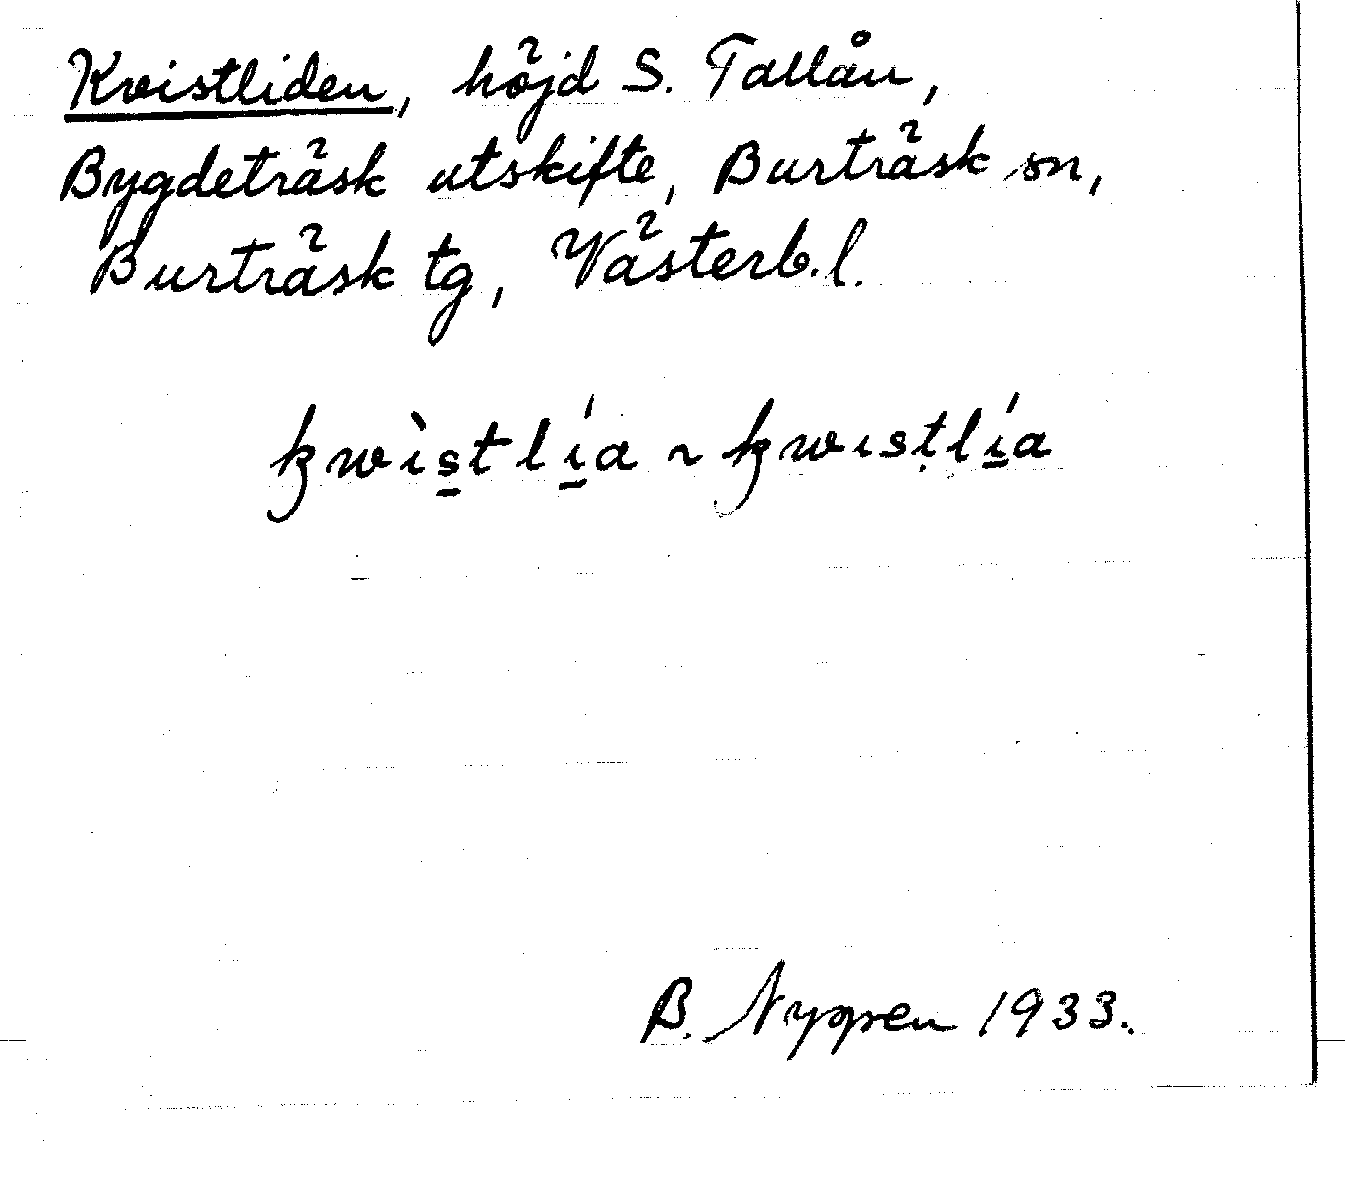 Kvistliden, höjd S. Tallån,
Bygdeträsk utskifte, Burträsk sn,
Burträsk tg, Västerb. l.
kwìs̠tlí̠a ~ kwısṭlí̠a
B. Nyppen 1933.